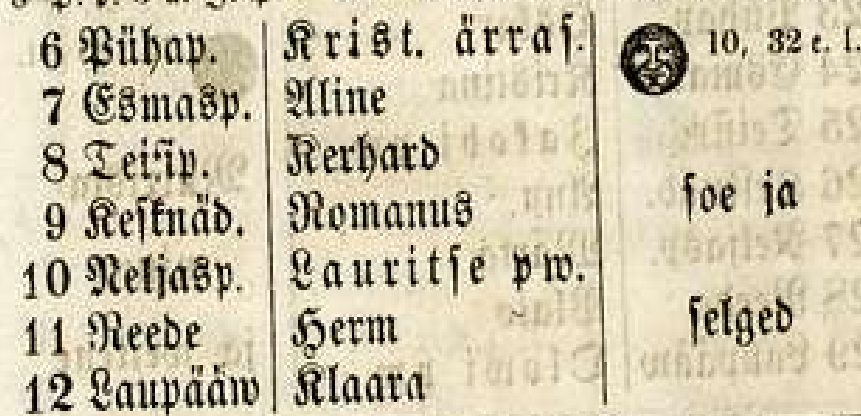 6 Pühap. Krist. ärras. 10, 32 e. l.
7 Esmasp. Aline
8 Teisip. Kerhard
9 Kesknäd. Romanus soe ja
10 Neljasp. Lauritse pw.
11 Reede Herm selged
12 Laupääw Klaara